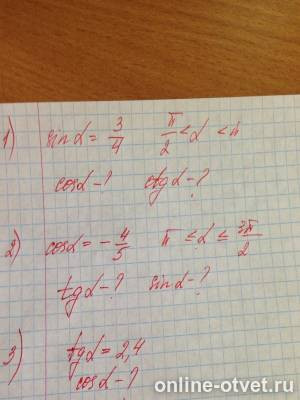 1) sin α = 3/4 π/2 < α < π
cos α - ? ctg α - ?
2) cos α = - 4/5 π ≤ α ≤ 3π/2
tg α - ? sin α - ?
3) tg α = 2,4
cos α - ?
online-otvet.ru